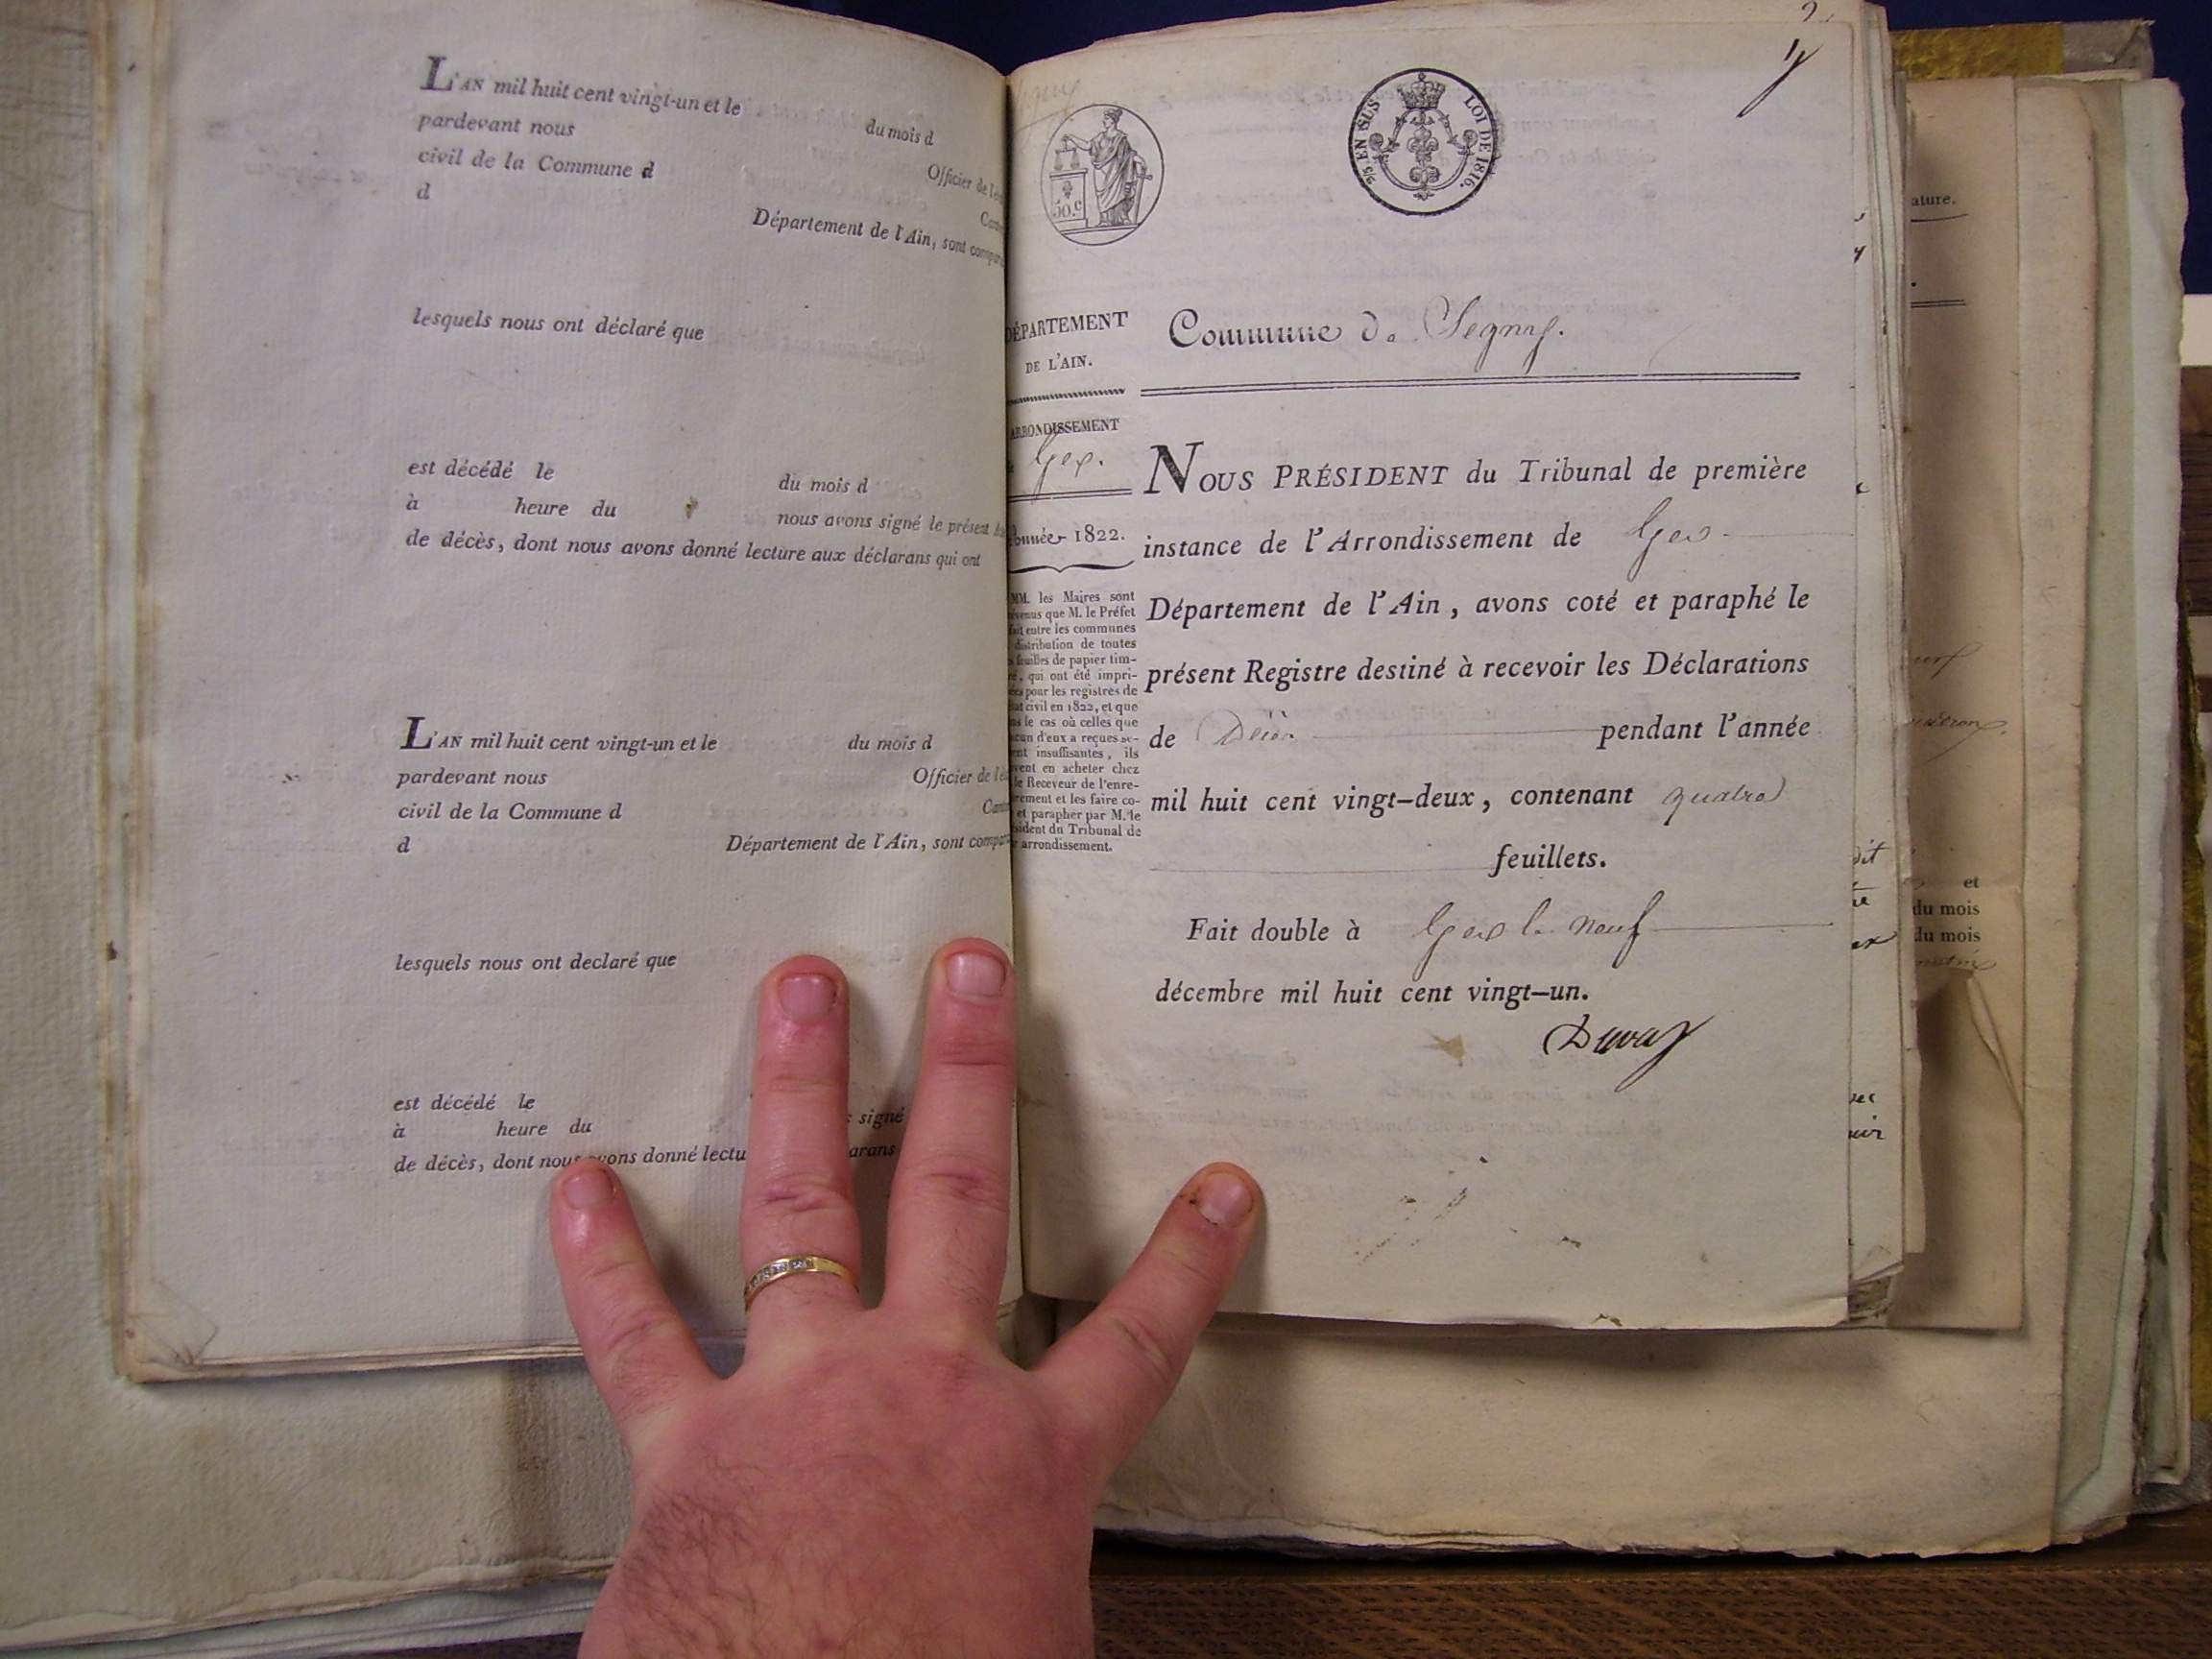 L'AN mil huit cent vingt-un et le du mois d
pardevant nous Officier de l'é
civil de la Commune d Canton
d Département de l'Ain, sont compar
lesquels nous ont déclaré que
est décédé le du mois d
à heure du nous avons signé le présent
de décès, dont nous avons donné lecture aux déclarans qui ont
L'AN mil huit cent vingt-un et le du mois d
pardevant nous Officier de l'é
civil de la Commune d Can
d Département de l'Ain, sont compar
lesquels nous ont declaré que
est décédé le
à heure du signé
de décès, dont nous avons donné lectu arans
50.c
5/5 EN SUS LOI DE 1816.
DÉPARTEMENT
DE L'AIN.
ARRONDISSEMENT
Gex.
Année 1822.
MM. les Maires sont
venus que M. le Préfet
fait entre les communes
distribution de toutes
feuilles de papier tim-
, qui ont été impri-
pour les registres de
at civil en 1822, et que
le cas où celles que
cun d'eux a reçues se-
ent insuffisantes, ils
vent en acheter chez
le Receveur de l'enre-
rement et les faire co-
et parapher par M. le
sident du Tribunal de
arrondissement.
Commune de Segny.
NOUS PRÉSIDENT du Tribunal de première
instance de l'Arrondissement de Gex
Département de l'Ain, avons coté et paraphé le
présent Registre destiné à recevoir les Déclarations
de Décès pendant l'année
mil huit cent vingt-deux, contenant quatre
feuillets.
Fait double à Gex le neuf
décembre mil huit cent vingt-un.
Duval
ature.
dit
et
du mois
du mois